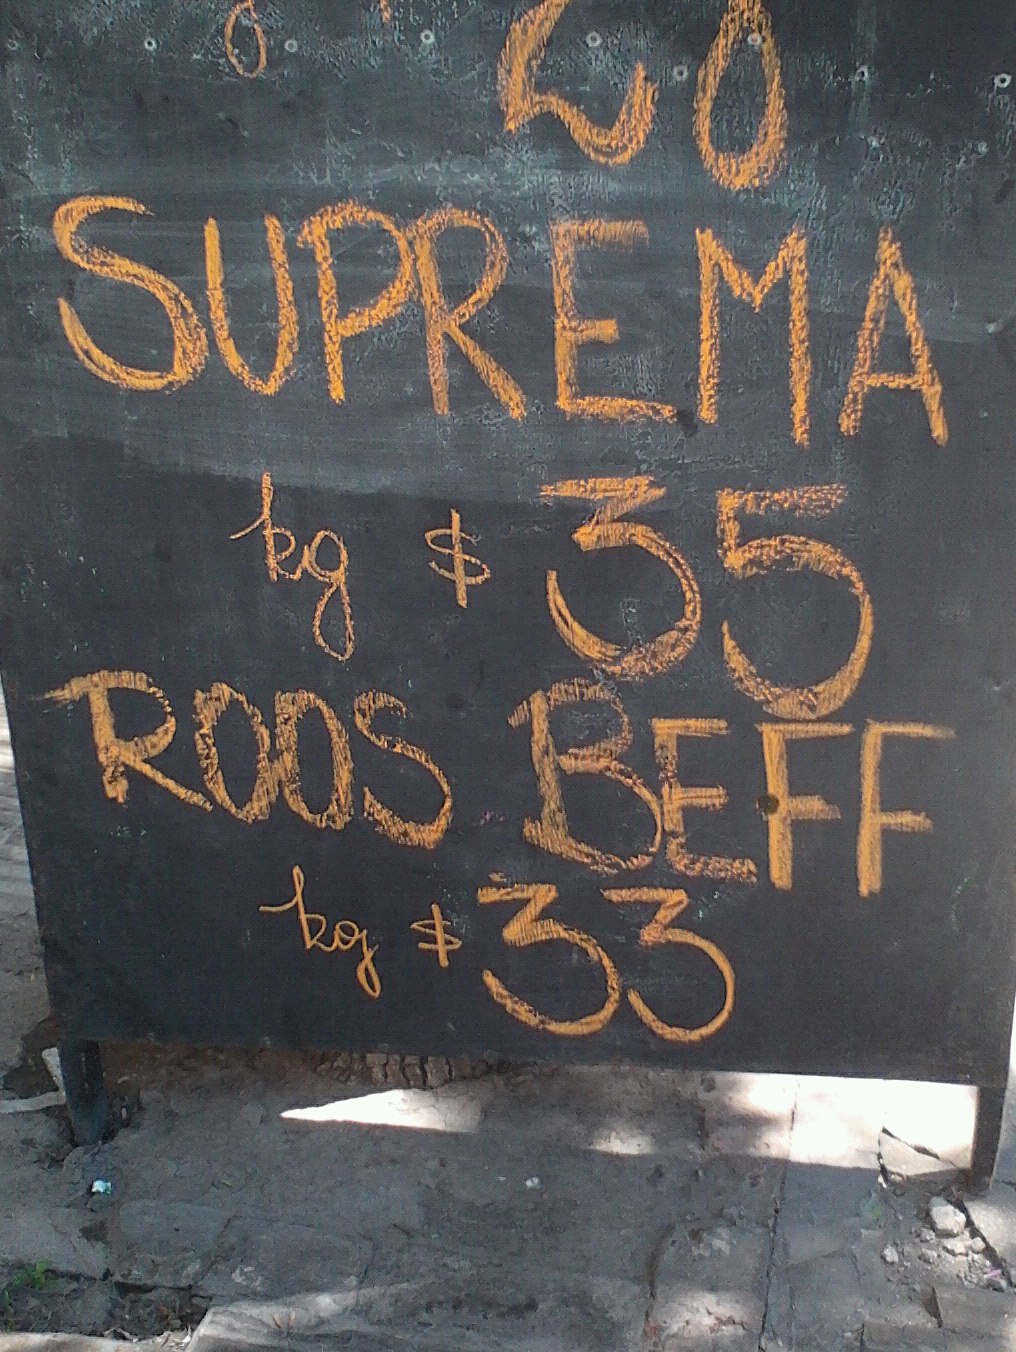 20
SUPREMA
kg $ 35
ROOS BEFF
kg $ 33